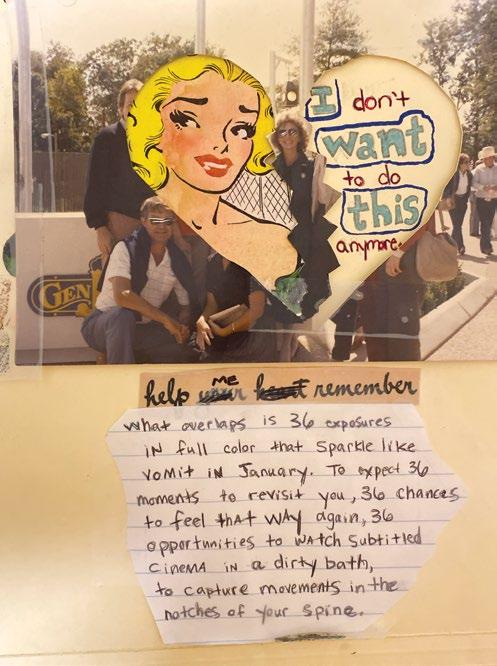 I don't
want
to do
this
anymore.
GEN
help your ME heart remember
What overlaps is 36 exposures
in full color that sparkle like
vomit in January. To expect 36
moments to revisit you, 36 chances
to feel that way again, 36
opportunities to watch subtitled
cinema in a dirty bath,
to capture movements in the
notches of your spine.